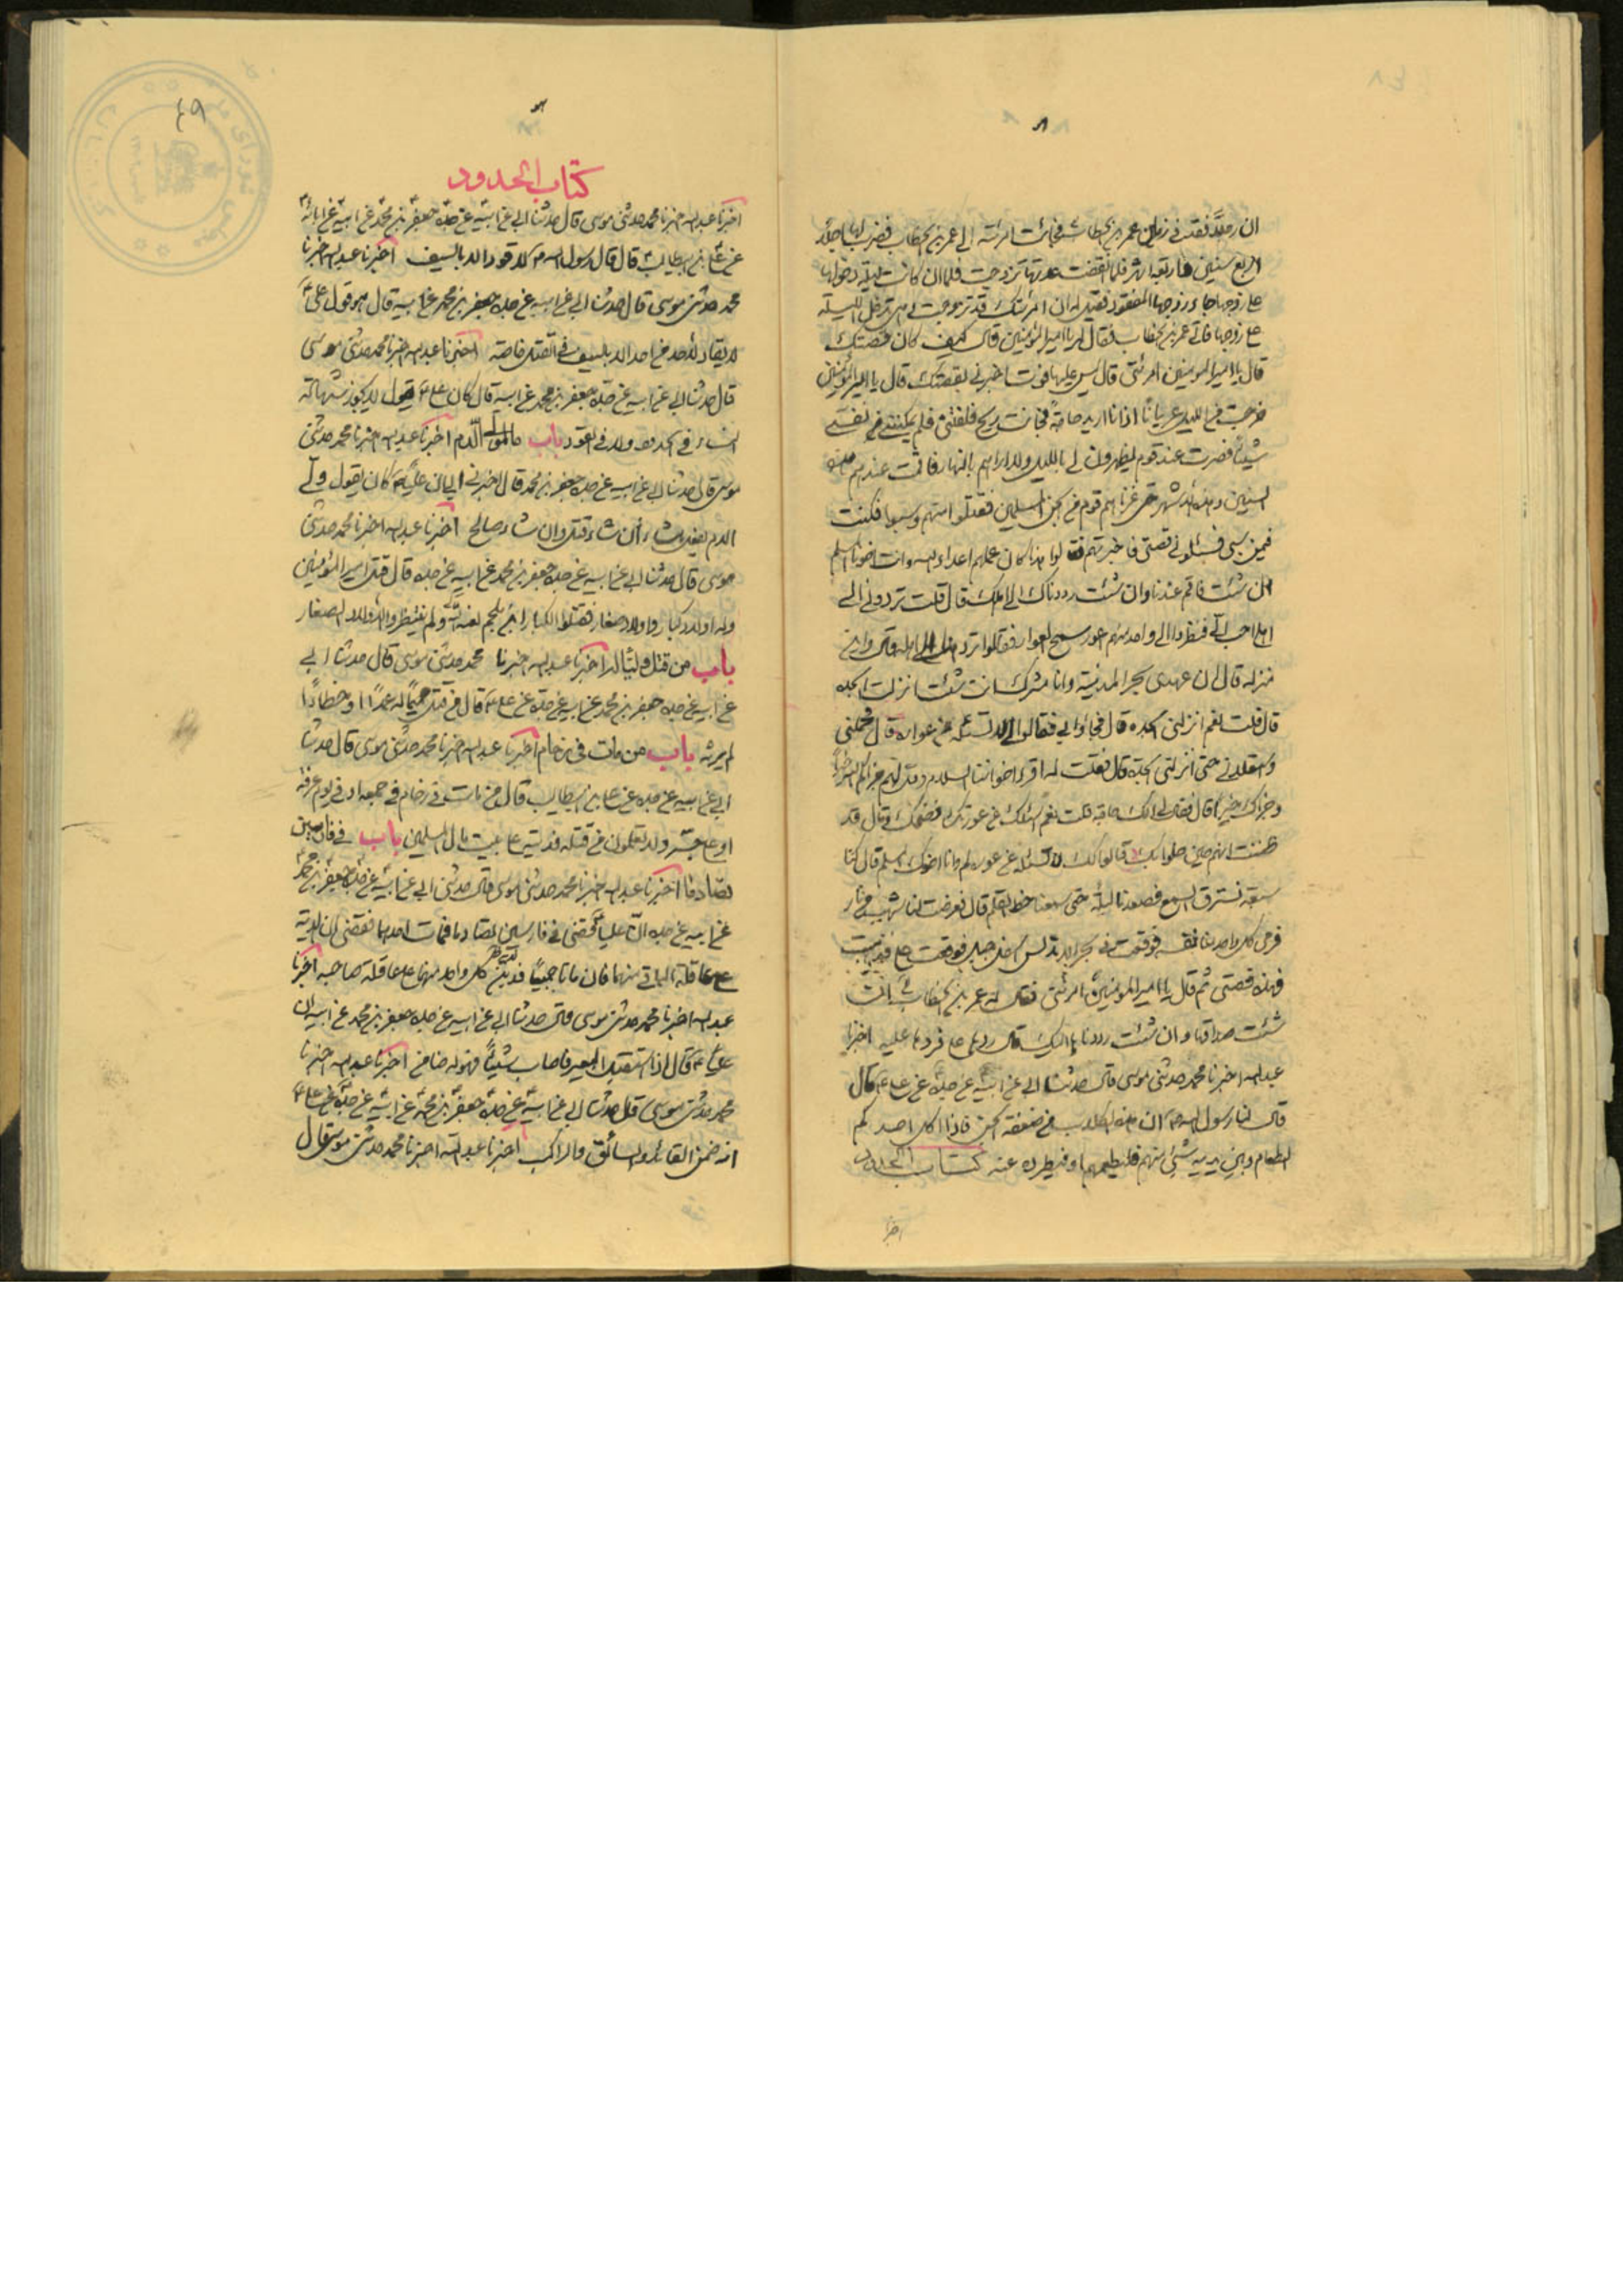 ان رجلا فقد في زمان عمر بن الخطاب فجائت امرئته الى عمر بن الخطاب فضرب لها اجلا
اربع سنين واربعة اشهر فلما انقضت عدتها تزوجت فلما ان كانت ليلة دخولها
على زوجها جاء زوجها المفقود فقيل له ان امرئتك قد تزوجت وهي تدخل الليلة
على زوجها فاتى عمر بن الخطاب فقال له يا امير المؤمنين قال كيف كان قصتك
قال يا امير المؤمنين امرئتى قال ليس عليها فوت اخبرني بقصتك قال يا امير المؤمنين
خرجت في الليل عريانا اذ انا اريد حاجة فجائت ريح فلفتنى فلم يمكننى من نفسى
شيئا فصرت عند قوم يظهرون لى بالليل ولا اراهم بالنهار فاقمت عندهم هذه
السنين وهذه الاشهر حتى غزاهم قوم من الجن المسلمين فقتلوا منهم وسبوا فكنت
فيمن سبى فسئلونى قصتى فاخبرتهم فقالوا هذا كان عمله اعداء الله وانت اخونا المسلم
ان شئت فاقم عندنا وان شئت رددناك الى اهلك قال قلت تردونى الى
اهلى احب الى فنظروا الى واحد منهم اعور سمج العوار فقالوا ترد هذا الى اهله قال وانى
منزله قال ان عهدى بحر المدينة وانا مشرك انت شئت انزلت الجده
قال قلت نعم انزلنى الجده قال فجاؤا بى فقالوا لى لا تسئله عن عواره قال فحملنى
حتى انزلنى الجدة قال فقلت له اقرء اخواننا السلام وقل لهم جزاكم الله خيرا
وجزاك خيرا قال فقال لى الك حاجة قلت نعم اسئلك عن عورتك فضحك وقال قد
ظننت انهم حين حملوا بك قالوا لك لا تسئله عن عوره لم وانا اخوك المسلم قال كنا
سبعة نسترق السمع فصعدنا ليلة حتى سمعنا خط القلم قال فعرضت لنا شهب من نار
فرمى كل واحد منا نفسه فوقعت في بحر
فهذه قصتى ثم قال يا امير المؤمنين امرئتى فقال له عمر بن الخطاب ان
شئت صداقها وان شئت رددناها اليك قال ردها على فردها عليه اخبرنا
عبد الله اخبرنا محمد حدثنى موسى قال حدثنا ابى عن ابيه عن جده عن على ع قال
قال لنا رسول الله ص ان هذه الكلاب من ضعفة الجن فاذا اكل احدكم
الطعام وبين يديه شئ منهم فليطعمها او ليطرده عنه كتاب الحدود
اخبرنا
٤٩
كتاب الحدود
اخبرنا عبد الله اخبرنا محمد حدثنى موسى قال حدثنا ابى عن ابيه عن جده جعفر بن محمد عن ابيه عن ابائه
عن على بن ابيطالب قال قال رسول الله ص لا قود الا بالسيف اخبرنا عبد الله اخبرنا
محمد حدثنى موسى قال حدثنا ابى عن ابيه عن جده جعفر بن محمد عن ابيه قال هو قول على ع
لا يقاد لاحد من احد الا بالسيف في القتل خاصة اخبرنا عبد الله اخبرنا محمد حدثنى موسى
قال حدثنا ابى عن ابيه عن جده جعفر بن محمد عن ابيه قال كان على ع يقول لا يجوز شهادة
النساء في الحدود ولا في القود باب ما لولى الدم اخبرنا عبد الله اخبرنا محمد حدثنى
موسى قال حدثنا ابى عن ابيه عن جده جعفر بن محمد قال اخبرنى ابى ان عليا ع كان يقول ولى
الدم يفعل ما شاء ان شاء قتل وان شاء صالح اخبرنا عبد الله اخبرنا محمد حدثنى
موسى قال حدثنا ابى عن ابيه عن جده جعفر بن محمد عن ابيه عن جده قال قتل امير المؤمنين
وله اولاد كبار واولاد صغار فقتلوا الكبار ابن ملجم لعنه الله ولم ينتظروا الاولاد الصغار
باب من قتل ميتا له اخبرنا عبد الله اخبرنا محمد حدثنى موسى قال حدثنا ابى
عن ابيه عن جده جعفر بن محمد عن ابيه عن جده عن على ع قال من قتل حميما له عمدا او خطا
لم يرثه باب من مات في زحام اخبرنا عبد الله اخبرنا محمد حدثنى موسى قال حدثنا
ابى عن ابيه عن جده عن على بن ابيطالب قال من مات في زحام في جمعة او في يوم عرفة
او على جسر ولا تعلمون من قتله فديته على بيت مال المسلمين باب في فارسين
تصادما اخبرنا عبد الله اخبرنا محمد حدثنى موسى قال حدثنى ابى عن ابيه عن جده جعفر بن محمد
عن ابيه عن جده ان عليا ع قضى في فارسين تصادما فمات احدهما فقضى ان الدية
على عاقلة الباقى منهما فان ماتا جميعا فدية كل واحد منهما على عاقلة صاحبه اخبرنا
عبد الله اخبرنا محمد حدثنى موسى قال حدثنا ابى عن ابيه عن جده جعفر بن محمد عن ابيه ان
عليا ع قال اذا استقبل البعير فاصاب شيئا فهو له ضامن اخبرنا عبد الله اخبرنا
محمد حدثنى موسى قال حدثنا ابى عن ابيه عن جده جعفر بن محمد عن ابيه عن جده عن على ع
انه ضمن القائد والسائق والراكب اخبرنا عبد الله اخبرنا محمد حدثنى موسى قال